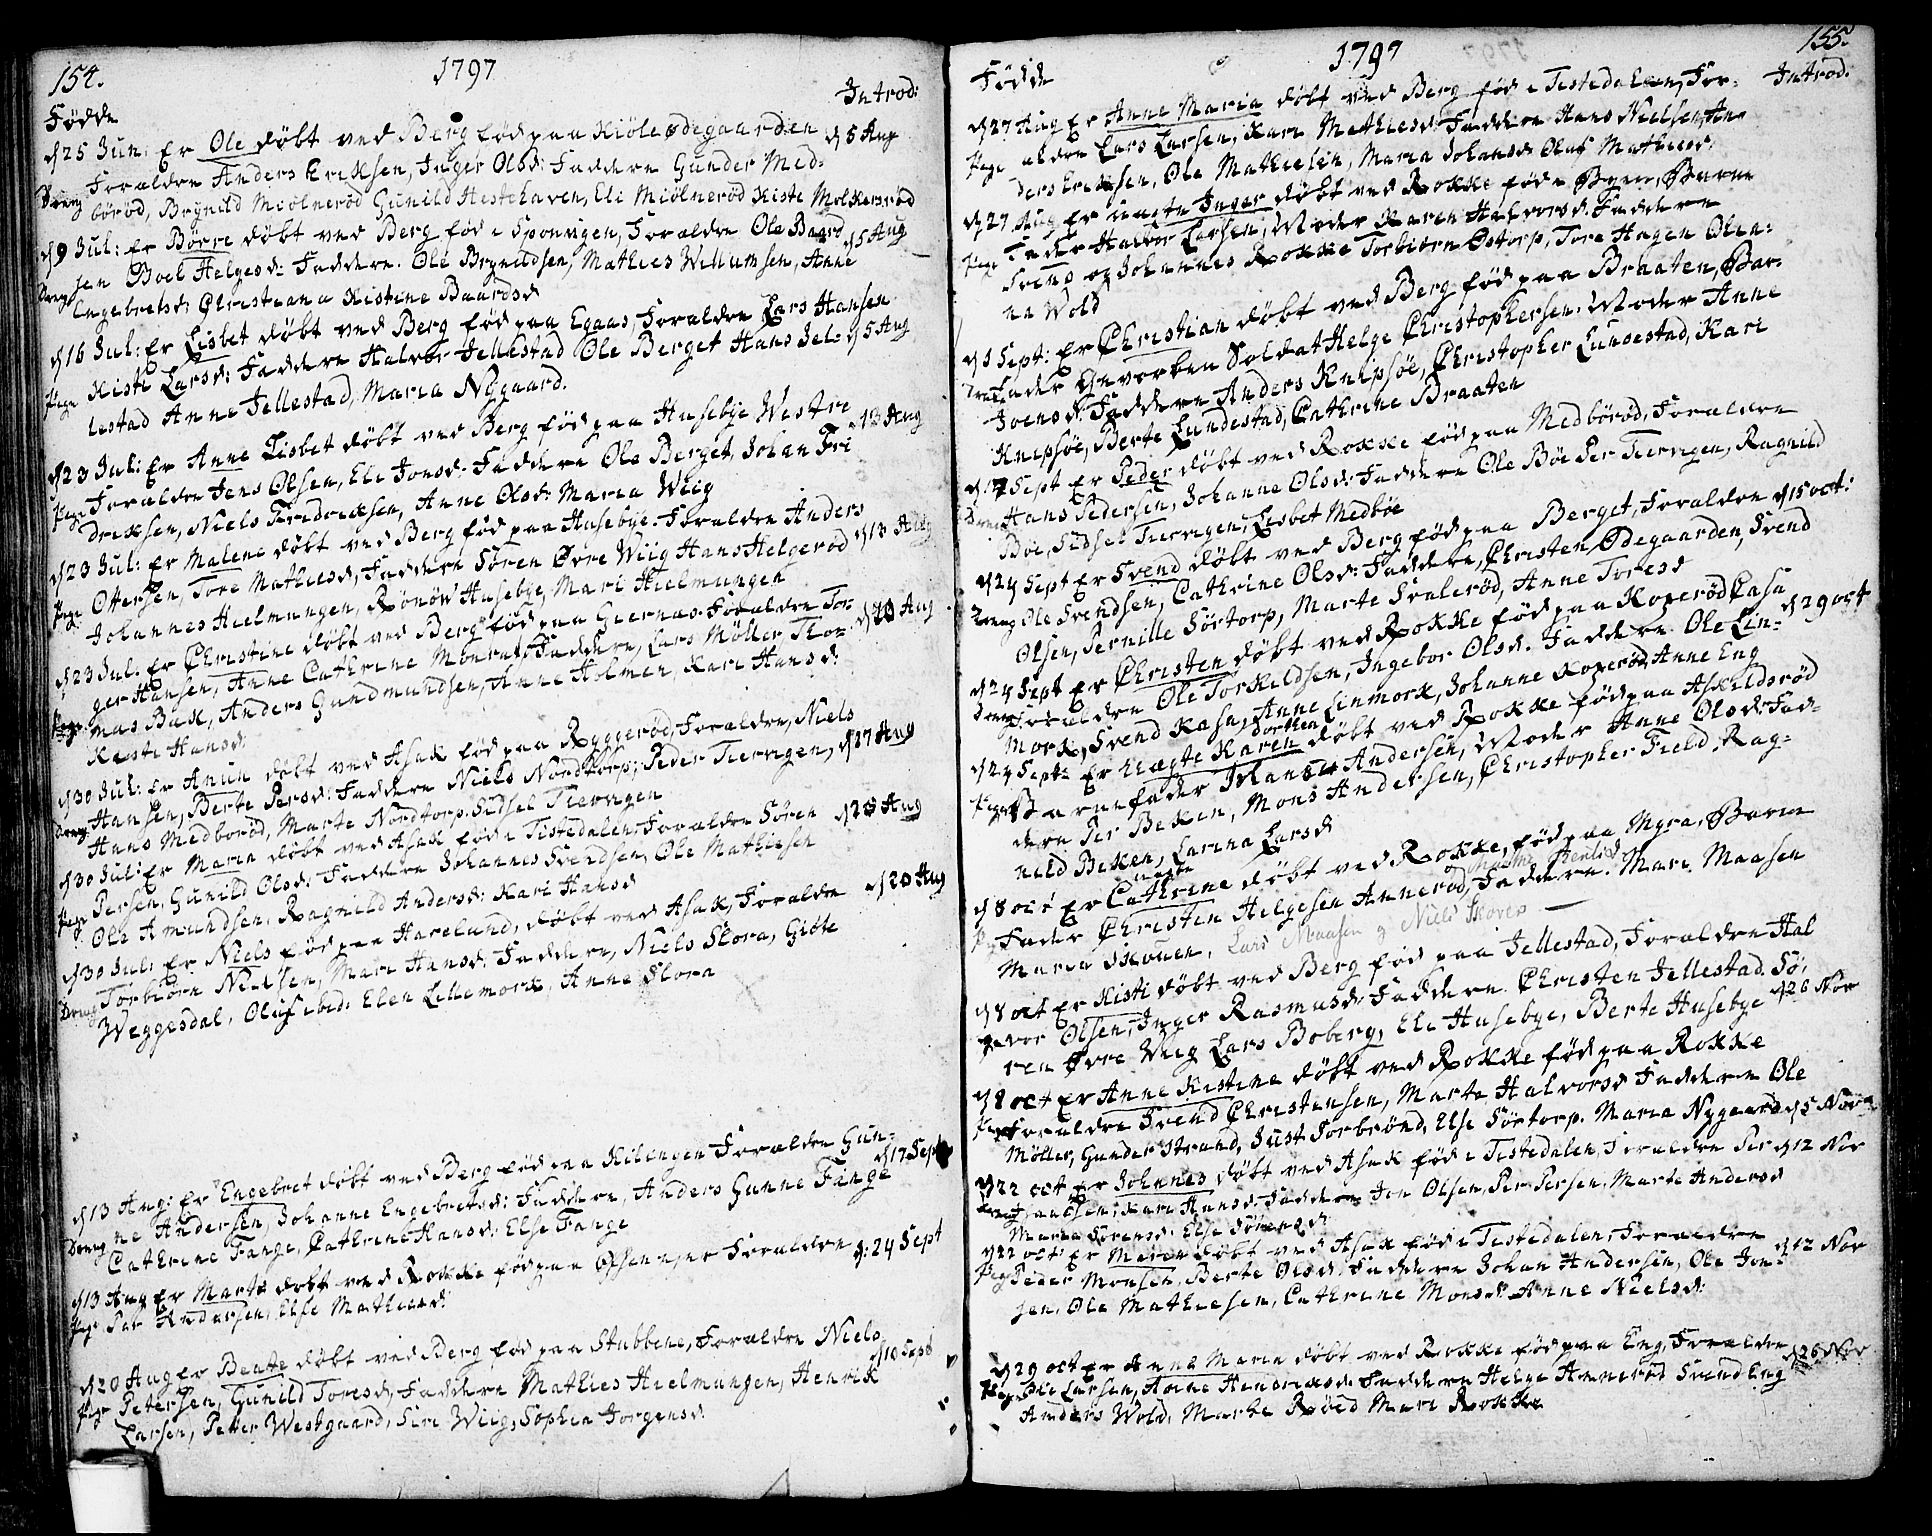 154.
1797
Introd:
Födde
d 25 Jun: Er Ole döbt ved Berg född paa Kiöleödegaarden d 5 Aug
Dreng Forældre Anders Eriksen, Inger Olsd: Faddere Gunder Med-
böröd, Brynild Miölneröd Gunild Hestehaven, Eli Miölneröd Kiste Molkeröd
d 9 Jul: Er Börre döbt ved Berg föd i Sponvigen, Forældre Ole Baard d 5 Aug
Dreng sen Boel Helgesd: Faddere. Ole Brynildsen, Mathies Willumsen, Anne
Engebretsd: Christiana Kistine Baardsd
d 16 Jul: Er Lisbet döbt ved Berg föd paa Egaas, Forældre Lars Hansen
Pige Kisti Larsd: Faddere Halvor Jellestad Ole Berget Hans Jel- d 5 Aug
lestad Anne Jellestad, Maria Nygaard.
d 23 Jul: Er Anne Lisbet döbt ved Berg föd paa Husebye Westre
Pige Forældre Jens Olsen, Eli Jonsd: Faddere Ole Berget, Johan Fri d 13 Aug
dreksen, Niels Fredreksen, Anne Olsd: Maria Wiig
d 23 Jul: Er Malene döbt ved Berg föd paa Husebye. Forældre Anders
Pige Ottersen, Tore Mathiesd, Faddere Sören Övre Wiig Hans Helgeröd d 13 Aug
Johannes Hielmungen, Rönöw Husebye, Mari Hielmungen
d 23 Jul. Er Christine döbt ved Berg föd paa Giernæs. Forældre Tor-
Pige ger Hansen, Anne Cathrine Monratd Faddere, Lars Möller Tho- d 20 Aug
mas Bak, Anders Gundmundsen, Anne Holmen, Kari Hansd:
Kirsti Hansd:
d 30 Jul: Er Anun döbt ved Asak föd paa Ryggeröd, Forældre, Niels
Dreng Hansen, Berte Persd: Faddere Niels Nordtorp, Peder Tiervigen, d 27 Aug
Hans Medboröd, Marte Nordtorp. Sidsel Tiervigen
d 30 Jul: Er Maria döbt ved Asak föd i Tistedalen. Forældre Sören
Pige Persen, Gunild Olsd: Faddere Johannes Svendsen, Ole Mathiesen d 28 Aug
Ole Amundsen. Ragnild Andersd: Kari Hansd
d 30 Jul: Er Niels föd paa Harelund, döbt ved Asak, Forældre d 20 Aug
Dreng Torbiörn Nielsen, Mari Hansd: Faddere, Niels Slora, Giöte
Weggesdal, Oluf ibid: Elen Lillemork, Anne Slora
d 13 Aug: Er Engebret döbt ved Berg föd paa Kilengen Forældre Gun-
Dreng ne Andersen, Johanne Engebretsd: Faddere, Anders Gunne Fange d 17 Sept
Cathrine Fange, Cathrine Hansd: Else Fange
d 13 Aug Er Marte döbt ved Rokke föd paa Forældre d: 24 Sept
Pige Per Andersen, Else Mathiesd:
d 20 Aug Er Beate döbt ved Berg föd paa Stubbene, Forældre Niels
Pige Petersen, Gunild Toresd, Faddere Mathies Hielmungen, Henrik d 10 Sept
Larsen, Peter Westgaard, Siri Wiig, Sophia Jorgensd:
155.
1797
Födde
Introd.
d 27 Aug Er Anne Maria döbt ved Berg föd i Tistedalen, For-
Pige ældre Lars Larsen, Kari Mathiesd: Faddere Hans Nielsen, An-
ders Eriksen, Ole Mathiesen, Maria Johansd: Oluf Mathiesd:
d 27 Aug Er uægte Inger döbt ved Rokke föd i Byen, Barne
Pige Fader Halvor Larsen, Moder Karen Halvorsd. Faddere
Svend og Johannes Rokke Torbiörn Östorp, Tore Hagen Olea-
na Wold
d 3 Sept: Er Christian döbt ved Berg föd paa Braaten, Bar-
Dreng nefader Gevorben Soldat Helge Christophersen. Moder Anne
Joensd: Faddere Anders Knipsöe, Christopher Lundestad, Kari
Knipsöe, Berte Lundestad, Cathrine Braaten
d 17 Sept Er Peder döbt ved Rokke föd paa Medböröd, Forældre
Dreng Hans Pedersen, Johanne Olsd: Faddere Ole Böe Per Tiervigen, Ragnild
Böe, Sidsel Tiervigen, Lisbet Medböe
d 24 Sept Er Svend döbt ved Berg föd paa Berget, Forældre d 15 oct:
Dreng Ole Svendsen, Cathrine Olsd: Faddere, Christen Ödegaarden, Svend
Olsen, Pernille Sörtorp, Marte Svaleröd, Anne Toresd
d 24 Sept Er Christen döbt ved Rokke föd paa Kopperöd Casa
Dreng Forældre Ole Torkildsen, Ingebor Olsd. Faddere. Ole Lin- d 29 oct
mork, Svend Kasa, Anne Linmork, Johanne Koperöd, Anne Eng
d 24 Sept: Er Uægte Karen Dorthea döbt ved Rokke föd paa Askildsröd
Pige Barnefader Johannes Andersen, Moder Anne Olsd: Fad-
dere Per Beken, Mons Andersen, Christopher Field, Rag-
nild Beken, Larina Larsd
d 8 oct Er uægte Cathrine döbt ved Rokke, föd paa Myra, Barne
Pige Fader Christen Helgesen Anneröd, Faddere. Mari Maasen
Maria Skouen, Lars Maasen og Niels Skoven
d 8 oct Er Kisti döbt ved Berg föd paa Jellestad, Forældre Hal
Pige vor Olsen, Inger Rasmusd: Faddere. Christen Jellestad. Sö-
ren Övre Wiig Lars Boberg, Eli Husebye, Berte Husebye d 26 Nov
d 8 oct Er Anne Kistine döbt ved Rokke föd paa Rokke
Pige Forældre Svend Christensen, Marte Halvorsd Faddere Ole
Möller, Gunder Strand, Just Torbrönd, Else Sörtorp. Maria Nygaard d 5 Nov
d 22 oct Er Johannes döbt ved Asak föd i Tistedalen, Forældre Per d 12 Nov
Dreng Paalsen, Kari Hansd. Faddere Jon Olsen, Per Persen, Marte Andersd
Maria Sörensd: Else Sörensd:
d 22 oct: Er Maren döbt ved Asak föd i Tistedalen, Forældre
Pige Peder Monsen, Berte Olsd: Faddere Johan Andersen, Ole Jon- d 12 Nov
sen, Ole Mathiesen, Cathrine Monsd: Anne Nielsd:
d 29 oct Er Anne Maria döbt ved Rokke föd paa Eng, Forældre d 26 Nov
Pige Ole Larsen, Anne Henriksd Faddere Helge Anneröd Svend Eng
Anders Wold, Marte Röed Mari Rokke